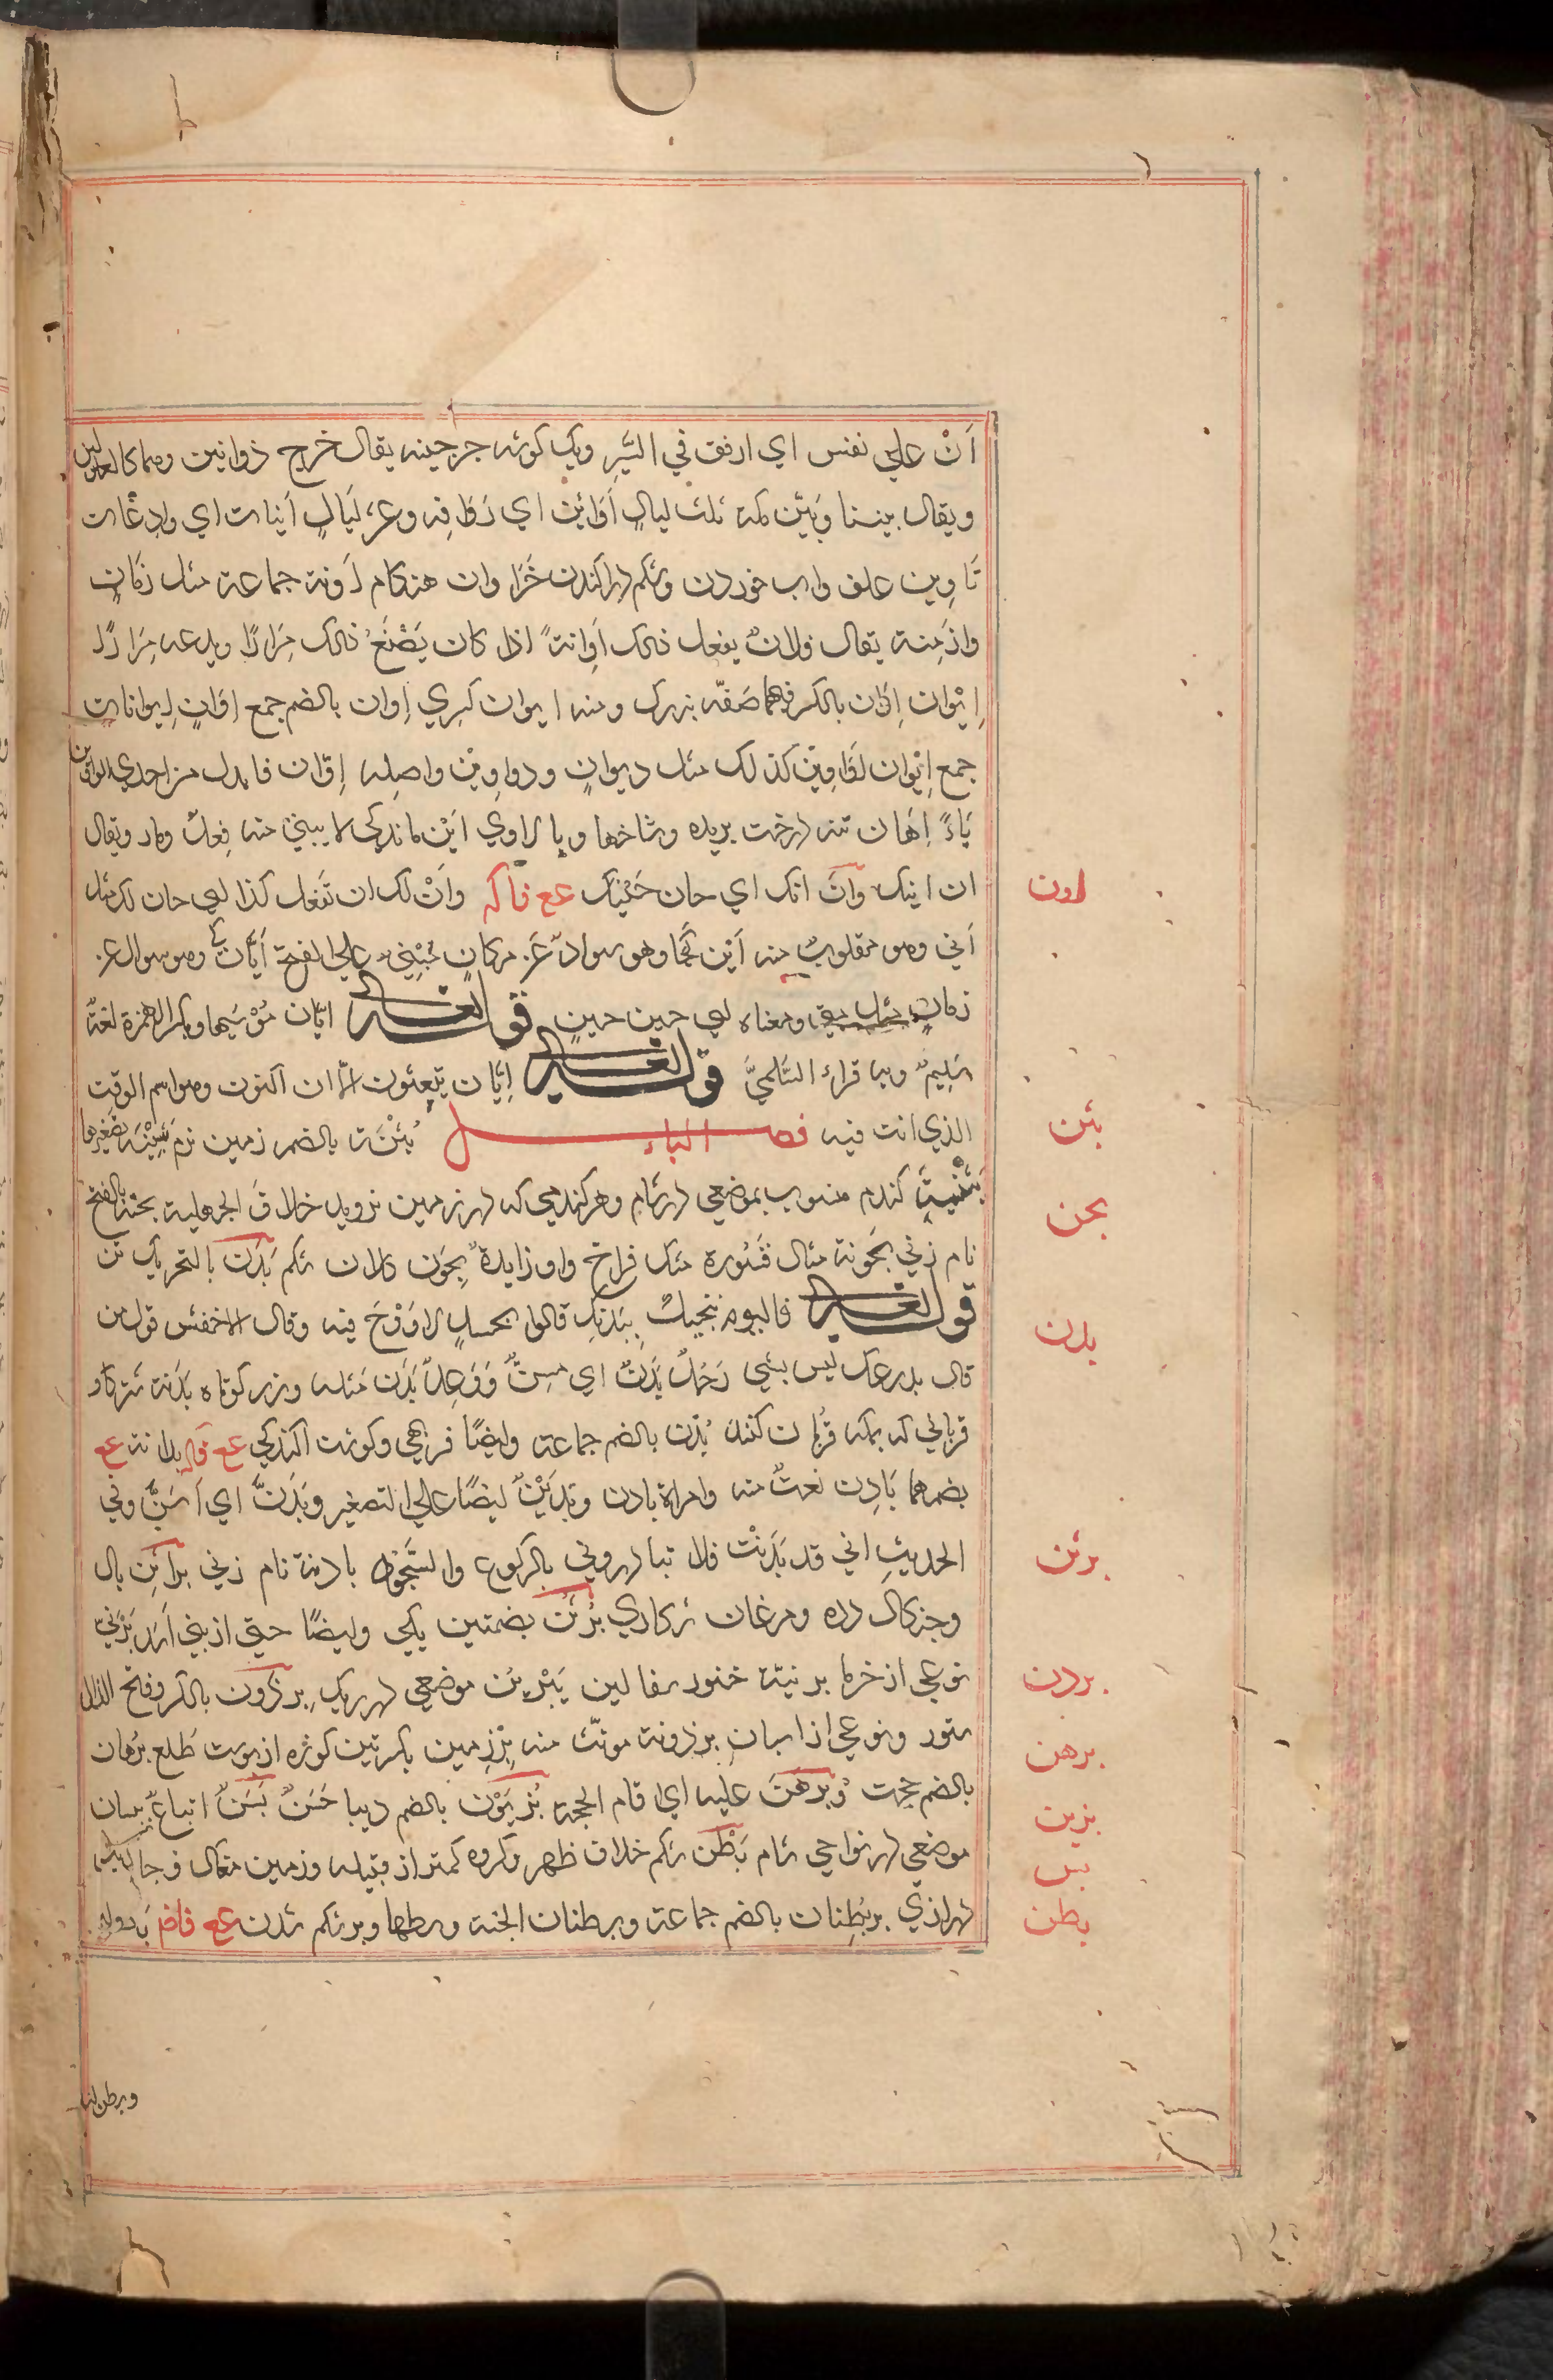 اَنْ علي نفس اي ارفق في السَّيرِ ويك كوشه خرجينه يقال خرج ذواونين وهما كالعدلين
ويقال بيننا وَبَيْن مكة ثلث ليالٍ اَوَائِن اي رَوَافِه وعشر لَيَالٍ اَينات اي وادِعَات
تَاوِين علف واب خوردن وشكم دراكندن خَرَ اوان هنكام اَونة جماعة مثل زمَانٍ
وازمِنة يقال فلانٌ يفعل ذلك اَوِانةً اذا كان يَصْنَعُ ذلك مِرَارًا ويدعه مِرَارًا
اِيْوان اِوَان بالكسر فيهما صَفّه بزرك ومنه ايوان كسري اِوان بالضم جمع اوَانٍ اِيوانات
جمع اِيْوان اوَاوِيْن كذلك مثل ديوانٍ ودواوِيْن واصله اِوّان فابدل من احدي الواوين
يَاءً اِهَان تنه درخت بريده وشاخها ويا راوي اَيْن ماندكي لا يبني منه فِعلٌ وقد ويقال
ان اينك وَانَ انك اي حان حَيْنك عع فاكه وَاَنْ لك ان تَفعل كذا اي حان لك مثل
اَني وهو مقلوبٌ منه اَيْن كجَا وهو سوادٌ عَن مكانٍ مَبْنِي علي الفتحة اَيَّان كي وهو سوال عن
زمانٍ مثل متي ومعناه اي حين حينٍ قوله تعالى ايَّان مُرْسَيها وبكسر الهمزة لغة
سُلِيمٌ وبها قراءَ السَّلمِيَّ قوله تعالى اِيَّان يبعثون الآن اكنون وهو اسم الوقت
الذي انت فيه فصل الباء بُثْنَة بالضم زمين نرم بُثَيْنَة تصغيرها
بَثْنِيَّة كندم منسوب بموضعي در شام وهر كندمي كه در زمين نرويد خلاف الجرهلية بحنة بالفتح
نام زني بَحْونة مثال قَسْورة مشك فراخ واو زايدةٌ بِحَوْن كلان شكم بَدَن بالتحريك تن
قوله تعالى فاليوم ننجيكَ بِبَدَنِك قالوا بجسدٍ لا رَوْحَ فيه وقال الاخفش قول من
قال بدرعك ليس بشي رَجُلٌ بَدَنٌ اي مسِنٌّ وَوَعِلٌ بَدَن مثله وزره كوتاه بَدَنة شتر كاو
قرباني كه بمكه قُربان كنند بُدْن بالضم جماعة وايضًا فربهي وكوشت اكندكي عع قاله بدانة عع
بضمهما بَادِن نعتٌ منه وامراة بادن وبَدِيْنٌ ايضًا علي التصغير وبَدَّنَ اي اَسَنَّ وفي
الحديثِ اني قد بَدَّنْت فلا تبادروني بالركوع والسُّجُود بادنة نام زني براثِن بال
وجنكال دده ومرغان شكاري بُرثُن بضمتين يكي وايضًا حيي از بني اَسَد بَرْنِيّ
نوعي از خرما برنيّة خنور سفالين يَبْرِيْن موضعي در ريك بِرذَون بالكسر وفتح الذال
ستور ونوعي از اسبان برذونة مونّث منه بِرْزِمين بكسرتين كوزه از پوست طَلع بُرهان
بالضم حجت وَبَرْهَنَ عليه اي اقام الحجة بُزْيَوْن بالضم ديبا حَسَنٌ بَسَنٌ اتباع بيسان
موضعي در نواحي شام بَطْن شكم خلاف ظهر وكروه كمتر از قبيله وزمين مغاك وجانب
درازي پر بُطنان بالضم جماعة وبطنان الجنة وسطها وبر شكم زدن عع فاض بَا دوله
اون
بثن
بحن
بدن
برثن
برذن
برهن
بزين
بسن
بطن
وبرطن لنا